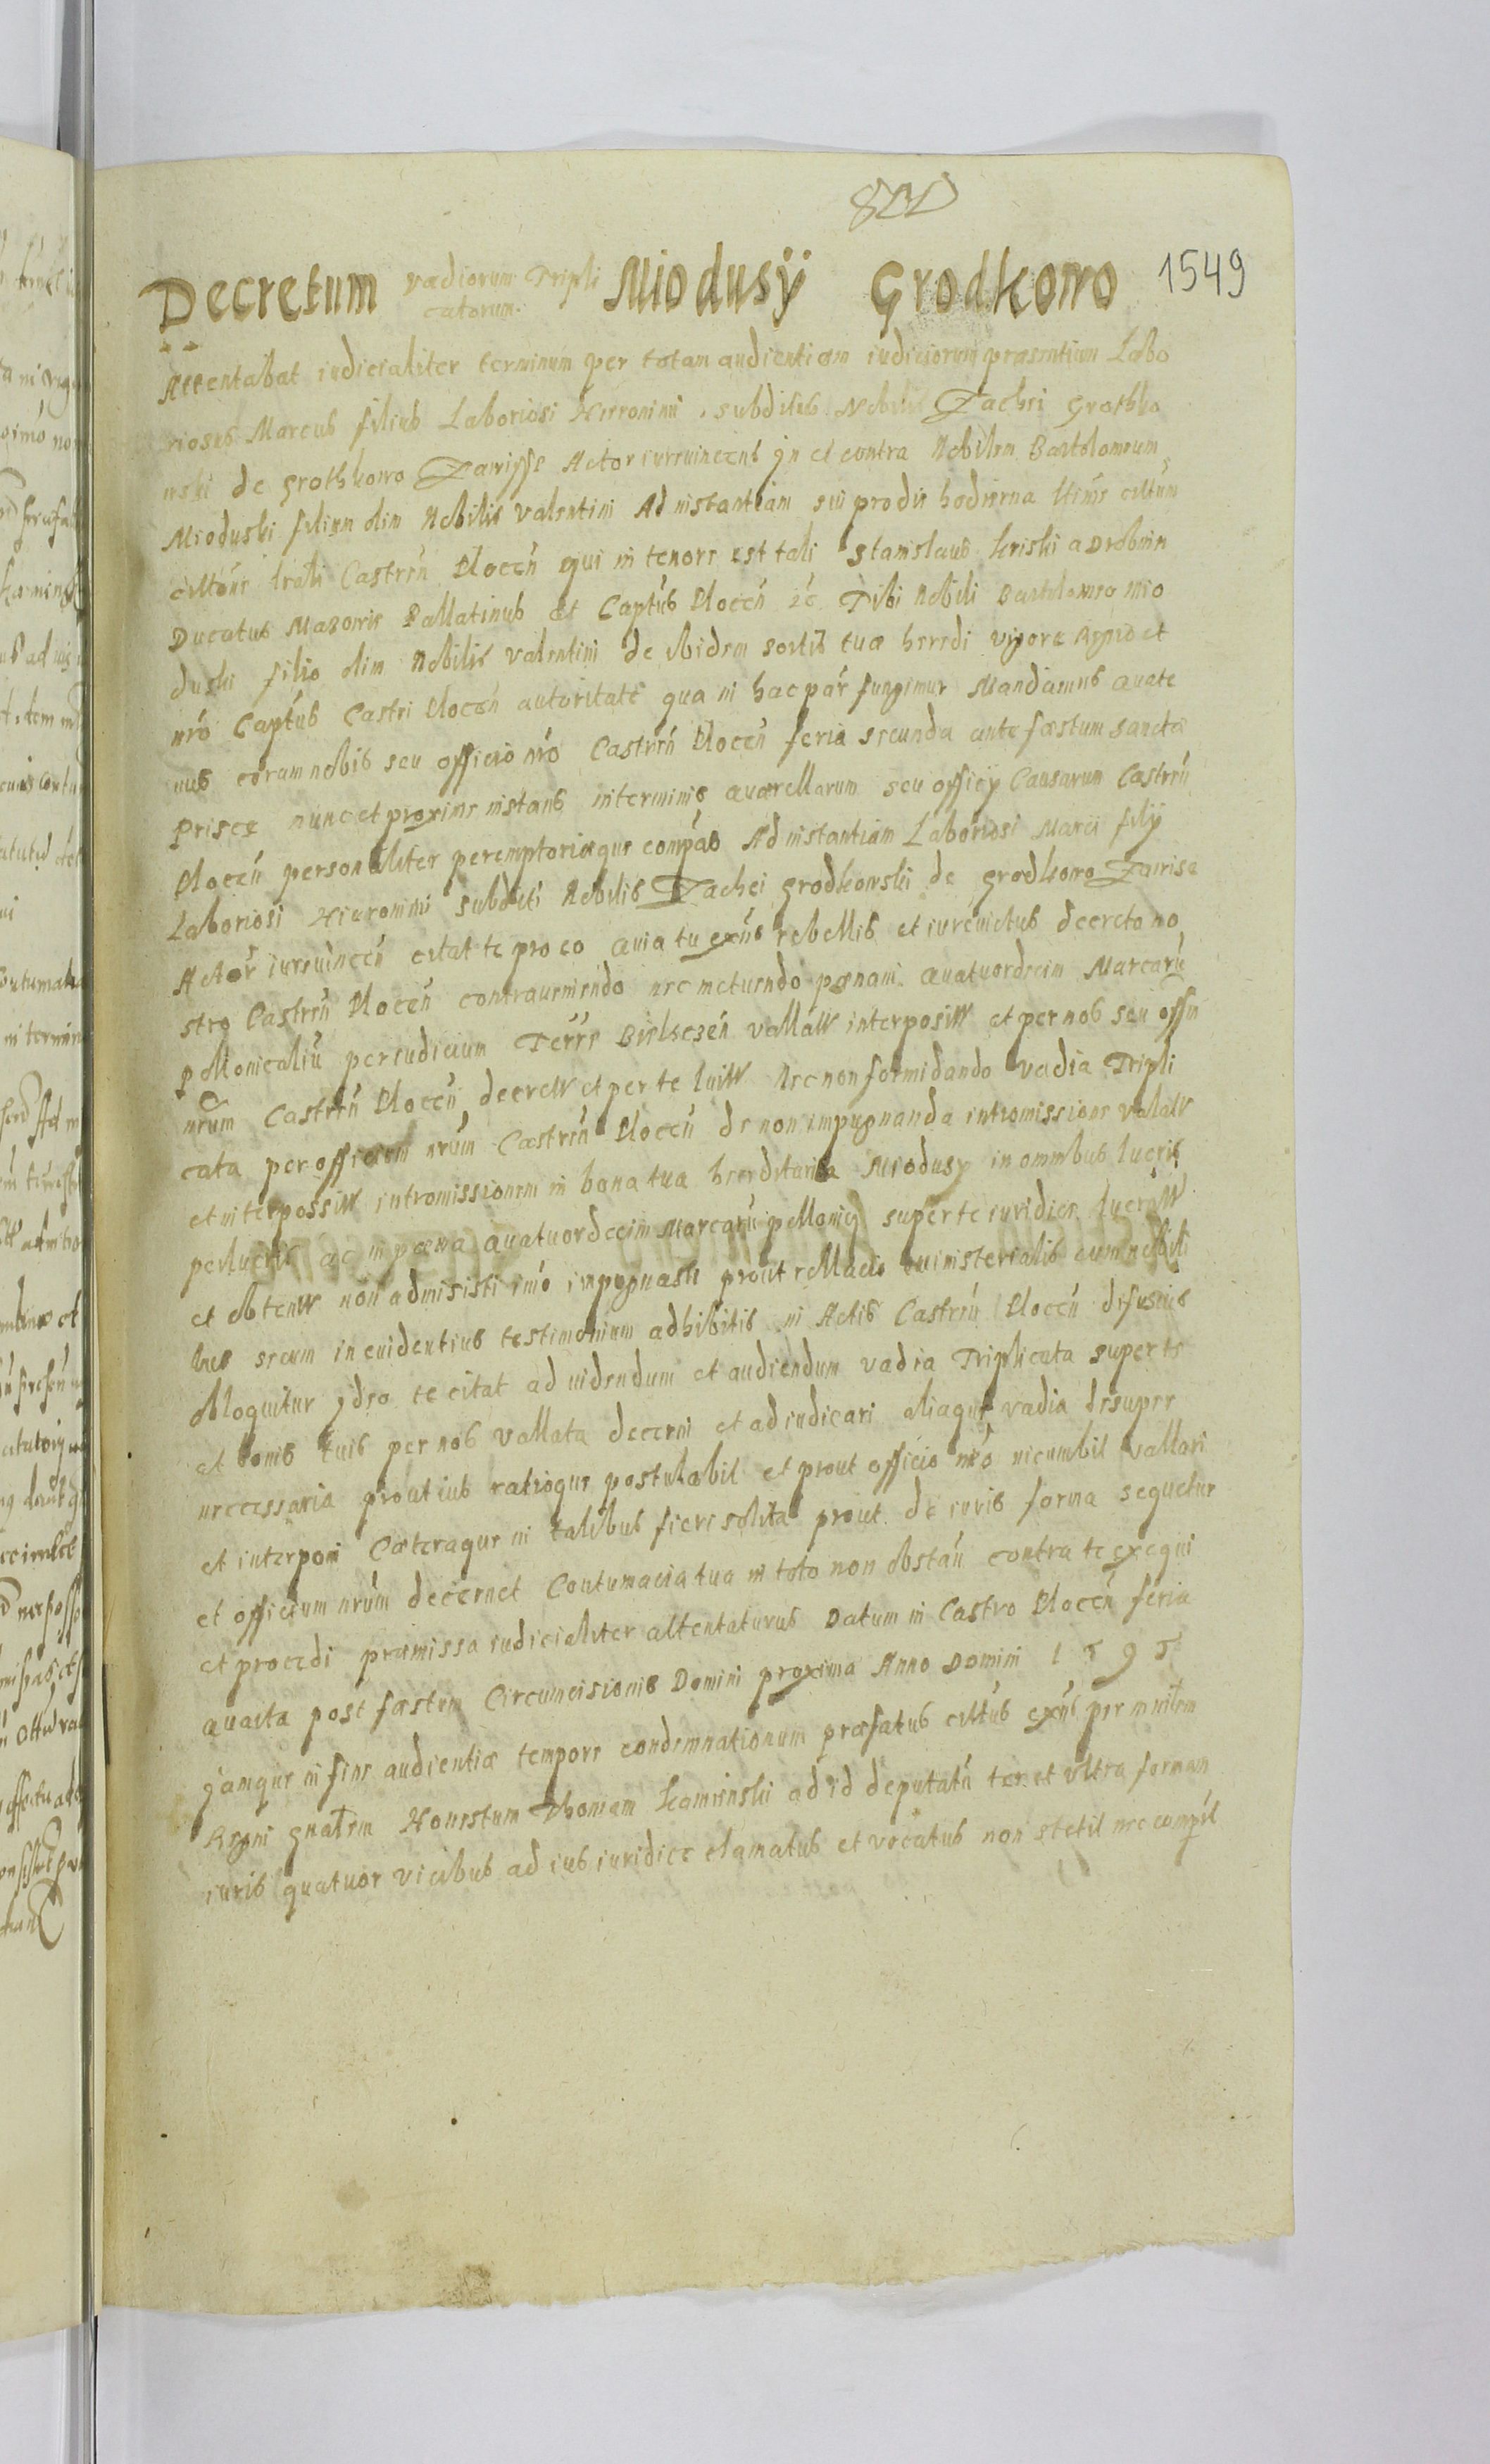 1549
Decretum vadiorum Tripli catorum Miodusÿ Grodkowo
Attentabat iudicialiter terminum per totam audientiam iudiciorum præsentium Labo
riosus Marcus filius Laboriosi Hieronimi subditus Nobilis Zachei Grothko
wski de Grothkowo Zawisse Actor iurevincens in et contra Nobilem Bartolomeum
Mioduski filium olim Nobilis Valentini Ad instantiam sui pro die hodierna citum
Castren Plocen qui in tenore est tali Stanislaus kriski a Drobnin
Ducatus Mazovie Pallatinus et Captus Plocen Tibi Nobili Bartolomeo Mio
duski filio olim Nobilis Valentini de ibidem sortis tuæ heredi vigore Regio et
nro Captus Castri Plocen autoritate qua in hac par fungimur Mandamus quate
nus coram nobis seu officio nro Castren Plocen feria secunda ante fæstum Sanctæ
Prisce nunc et proxime instans in terminis quærellarum seu officÿ Causarum Castren
Plocen personaliter peremptorieque compās Ad instantiam Laboriosi Marci filÿ
Laboriosi Hieronimi subditi Nobilis Zachei Grodkowski de Grodkowo Zawise
Actor iurevincen citat te pro eo quia tu exñs rebellis et iurevictus decreto no
stro Castren Plocen contraveniendo nec metuendo pœnam quatuordecim Marcarū
pollonicaliū per iudicium Terre Bielscen vallaw interposiw et per nos seu offin
nrum Castren Plocen decrew et per te luiw Nec non formidando vadia Tripli
cata per officium nrum Castren Plocen de non impugnanda intromissione valaw
et interpossiw intromissionem in bona tua hereditaria Miodusy in omnibus lucris
perlucris ac in pœna quatuordecim Marcarū pollonic super te iuridice lucraw
et obtenw non admisisti imo impugnasti prout rellacio ministerialis cum nobili
bus secum in evidentius testimonium adhibitis in Actis Castren Plocen difusius
obloquitur ideo te citat ad uidendum et audiendum vadia Triplicata super te
et bonis tuis per nos vallata decerni et adiudicari aliaque vadia desuper
necessaria prout ius ratioque postulabit et prout officio nro incumbit vallari
et interponi Cæteraque in talibus fieri solita prout de iuris forma sequetur
et officium nrum decernet Contumacia tua in toto non obstan contra te exequi
et procedi præmissa iudicialiter attentaturus Datum in Castro Plocen feria
quarta post fæstum Circumcisionis Domini proxima Anno Domini 1595
Jamque in fine audientiæ tempore condemnationum præfatus citus exñs per mnitrem
Regni gnalem Honestum Thomam kaminski ad id deputatū ter et ultra formam
iuris quatuor vicibus ad ius iuridice clamatus et vocatus non stetit nec compit